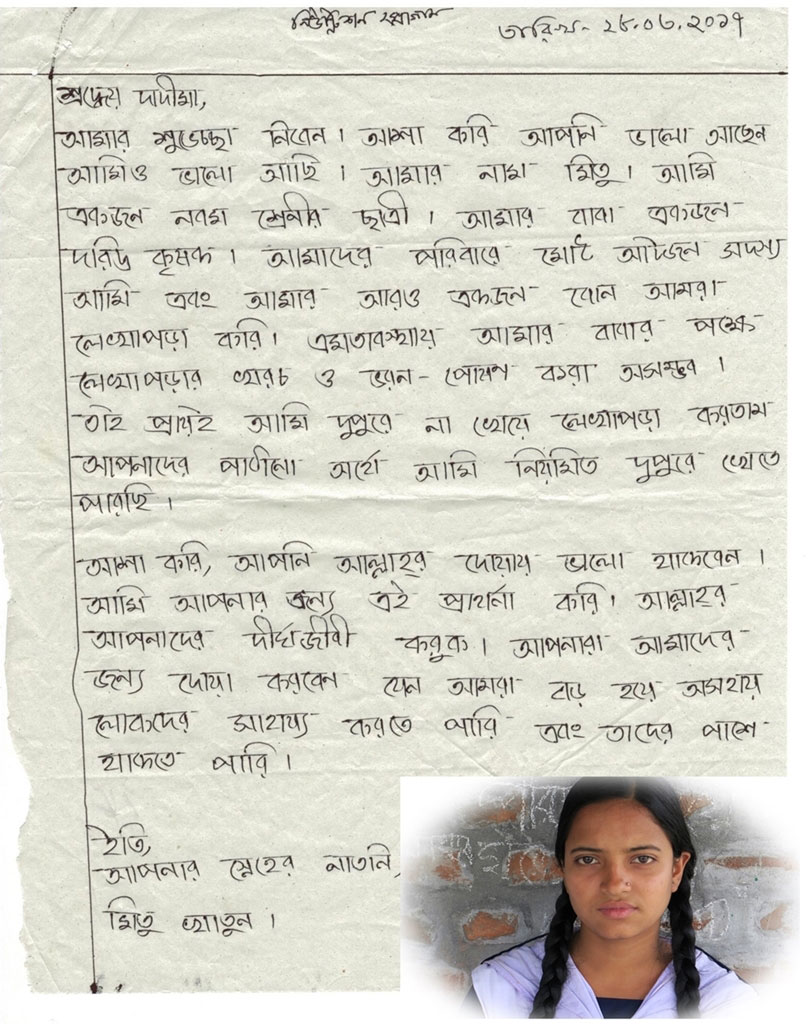 নিউট্রিশন প্রোগ্রাম
তারিখ- ২৮.০৩.২০১৭
শ্রদ্ধেয় দাদীমা,
আমার শুভেচ্ছা নিবেন। আশা করি আপনি ভালো আছেন
আমিও ভালো আছি। আমার নাম মিতু। আমি
একজন নবম শ্রেনীর ছাত্রী। আমার বাবা একজন
দরিদ্র কৃষক। আমাদের পরিবারে মোট আটজন সদস্য
আমি এবং আমার আরও একজন বোন আমরা
লেখাপড়া করি। এমতাবস্থায় আমার বাবার পক্ষে
লেখাপড়ার খরচ ও ভরন-পোষণ করা অসম্ভব।
তাই প্রায়ই আমি দুপুরে না খেয়ে লেখাপড়া করতাম
আপনাদের পাঠানো অর্থে আমি নিয়মিত দুপুরে খেতে
পারছি।
আশা করি, আপনি আল্লাহর দোয়ায় ভালো থাকবেন।
আমি আপনার জন্য এই প্রার্থনা করি। আল্লাহর
আপনাদের দীর্ঘজীবী করুক। আপনারা আমাদের
জন্য দোয়া করবেন যেন আমরা বড় হয়ে অসহায়
লোকদের সাহায্য করতে পারি এবং তাদের পাশে
থাকতে পারি।
ইতি,
আপনার স্নেহের নাতনি,
মিতু খাতুন।